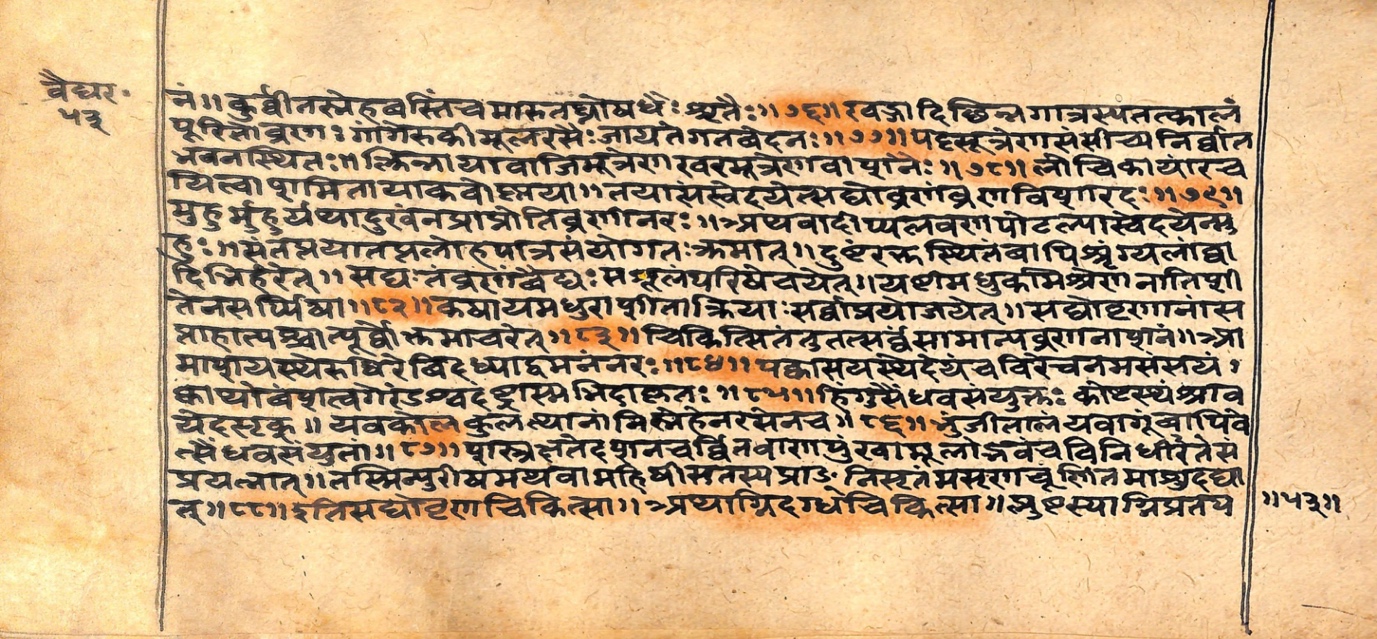 वैद्यर॰
५३
नं॥ कुर्वीतस्नेहवस्तिंचमारुतघ्नौषधैःश्रृतैः॥७६॥खड्गादिछिन्नगात्रस्यतत्कालं
पूरितोव्रणः गांगेरुकीमूलरसैःजायतेगतवेदनः॥७७॥पट्टसूत्रेणसंसीच्यनिर्वात
भवनस्थितः॥ क्तिन्नायावाजिमूत्रेणखरमूत्रेणवाशनैः॥७८॥लौचिकायांरच
यित्वाशमितायाकवोष्मया॥ तयासंस्वेदयेत्सद्योव्रणंव्रणविशारदः॥७९॥
मुहुर्मुहुर्यथादुखंनप्राप्नोतिव्रणीनरः॥अथवादीप्यलवणपोटल्यास्वेदयेन्मु
हुः॥ संतप्तयातप्तलोहपात्रसंयोगतःक्रमात्॥ दुष्टंरक्तस्थितंवापिश्रृंग्यलांब्वा
दिभिर्हरेत्॥ सद्यःतंव्रणंवैद्यःसशूलंपरिषेचयेत्॥यष्टीमधुकमिश्रेणनातिशी
तेनसर्प्पिषा॥८२॥कषायमधुराशीताक्रियाःसर्वाप्रयोजयेत्॥ सद्योव्रणानांस
प्ताहात्पश्चात्पूर्वोक्तमाचरेत्॥८३॥चिकित्सितंतुतत्सर्वंसामान्यव्रणनाशनं॥आ
माशयस्थेरुधिरेविदध्याद्वमनंनरः॥८४॥पक्वासयस्थेदेयंचविरेचनमसंसयं।
क्वाथोवंशत्वगेरंडश्वदंष्ट्रास्मभिदाकृतः॥८५॥हिंगुसैंधवसंयुक्तःकोष्टस्थंश्राव
येदसृक्॥ यवकोलकुलत्थानांनिस्नेहेनरसेनच॥८६॥भुंजीतान्नंयवागूंवापिवे
त्सैंधवसंयुतां॥८७॥
प्रयत्नात्॥तस्मिन्पुरीषमथवामहिषीसुतस्यप्राङ्निसृतंमसृणचूर्णितमाश्रुदद्या
त्॥८८॥इतिसद्योव्रणचिकित्सा॥अथाग्निदग्धचिकित्सा॥प्लुष्टस्याग्निप्रतप
॥५३॥